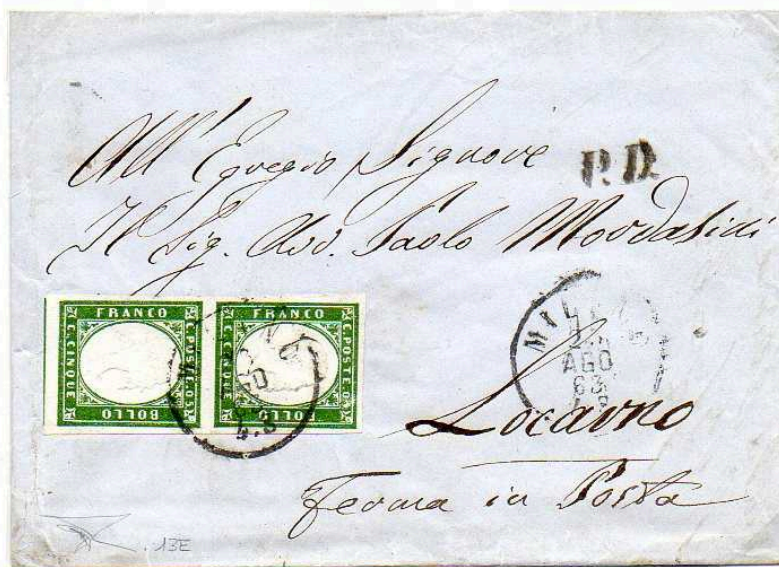 All' Egregio Signore
P.D.
Il Sig. Avv. Paolo Mordasini
FRANCO
C. CINQUE
C. POSTE. 05
BOLLO
FRANCO
C. CINQUE
C. POSTE. 05
BOLLO
AGO
63
Locarno
Ferma in Posta
13E